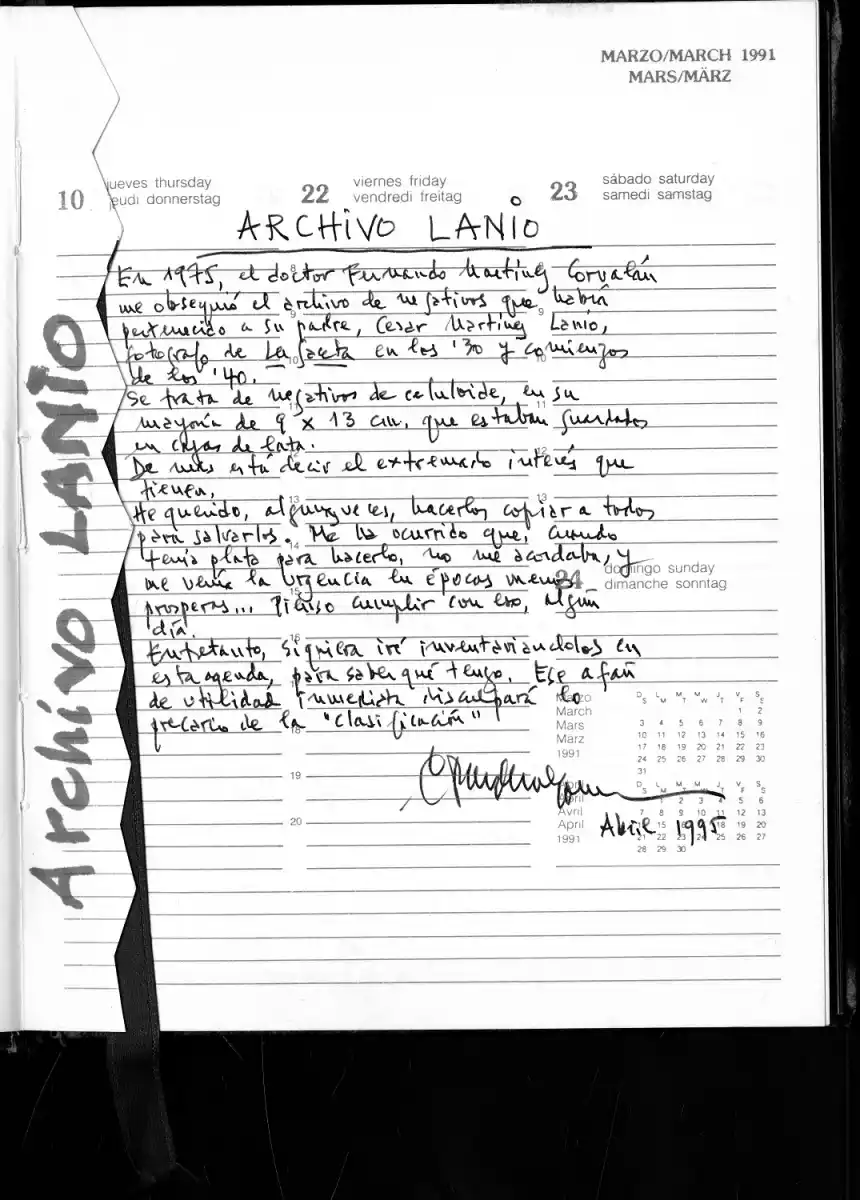 MARZO/MARCH 1991
MARS/MÄRZ
jueves thursday
10 jeudi donnerstag
viernes friday
22 vendredi freitag
sábado saturday
23 samedi samstag
ARCHIVO LANIO
Archivo LANIO
En 1975, el doctor Fernando Martínez Corvalán
me obsequió el archivo de negativos que había
pertenecido a su padre, Cesar Martínez Lanio,
fotógrafo de La Gaceta en los '30 y comienzos
de los '40.
Se trata de negativos de celuloide, en su
mayoría de 9 x 13 cm, que estaban guardados
en cajas de lata.
De más está decir el extremado interés que
tienen.
He querido, algunas veces, hacerlos copiar a todos
para salvarlos. Me ha ocurrido que, cuando
tenía plata para hacerlo, no me acordaba, y
me venía la urgencia en épocas menos
prosperas... Pienso cumplir con eso, algún
día.
Entretanto, siquiera iré inventariandolos en
esta agenda, para saber qué tengo. Ese afán
de utilidad inmediata disculpará lo
precario de la "clasificación"
Abril 1995
domingo sunday
24 dimanche sonntag
8
9 9
10 10
11 11
12
13 13
14
15
16
18
19
20
Marzo D L M M J V S
March S M T W T F S
Mars 1 2
März 3 4 5 6 7 8 9
1991 10 11 12 13 14 15 16
17 18 19 20 21 22 23
24 25 26 27 28 29 30
31
Abril D L M M J V S
April S M T W T F S
Avril 1 2 3 4 5 6
April 7 8 9 10 11 12 13
1991 15 18 19 20
21 22 23 24 25 26 27
28 29 30